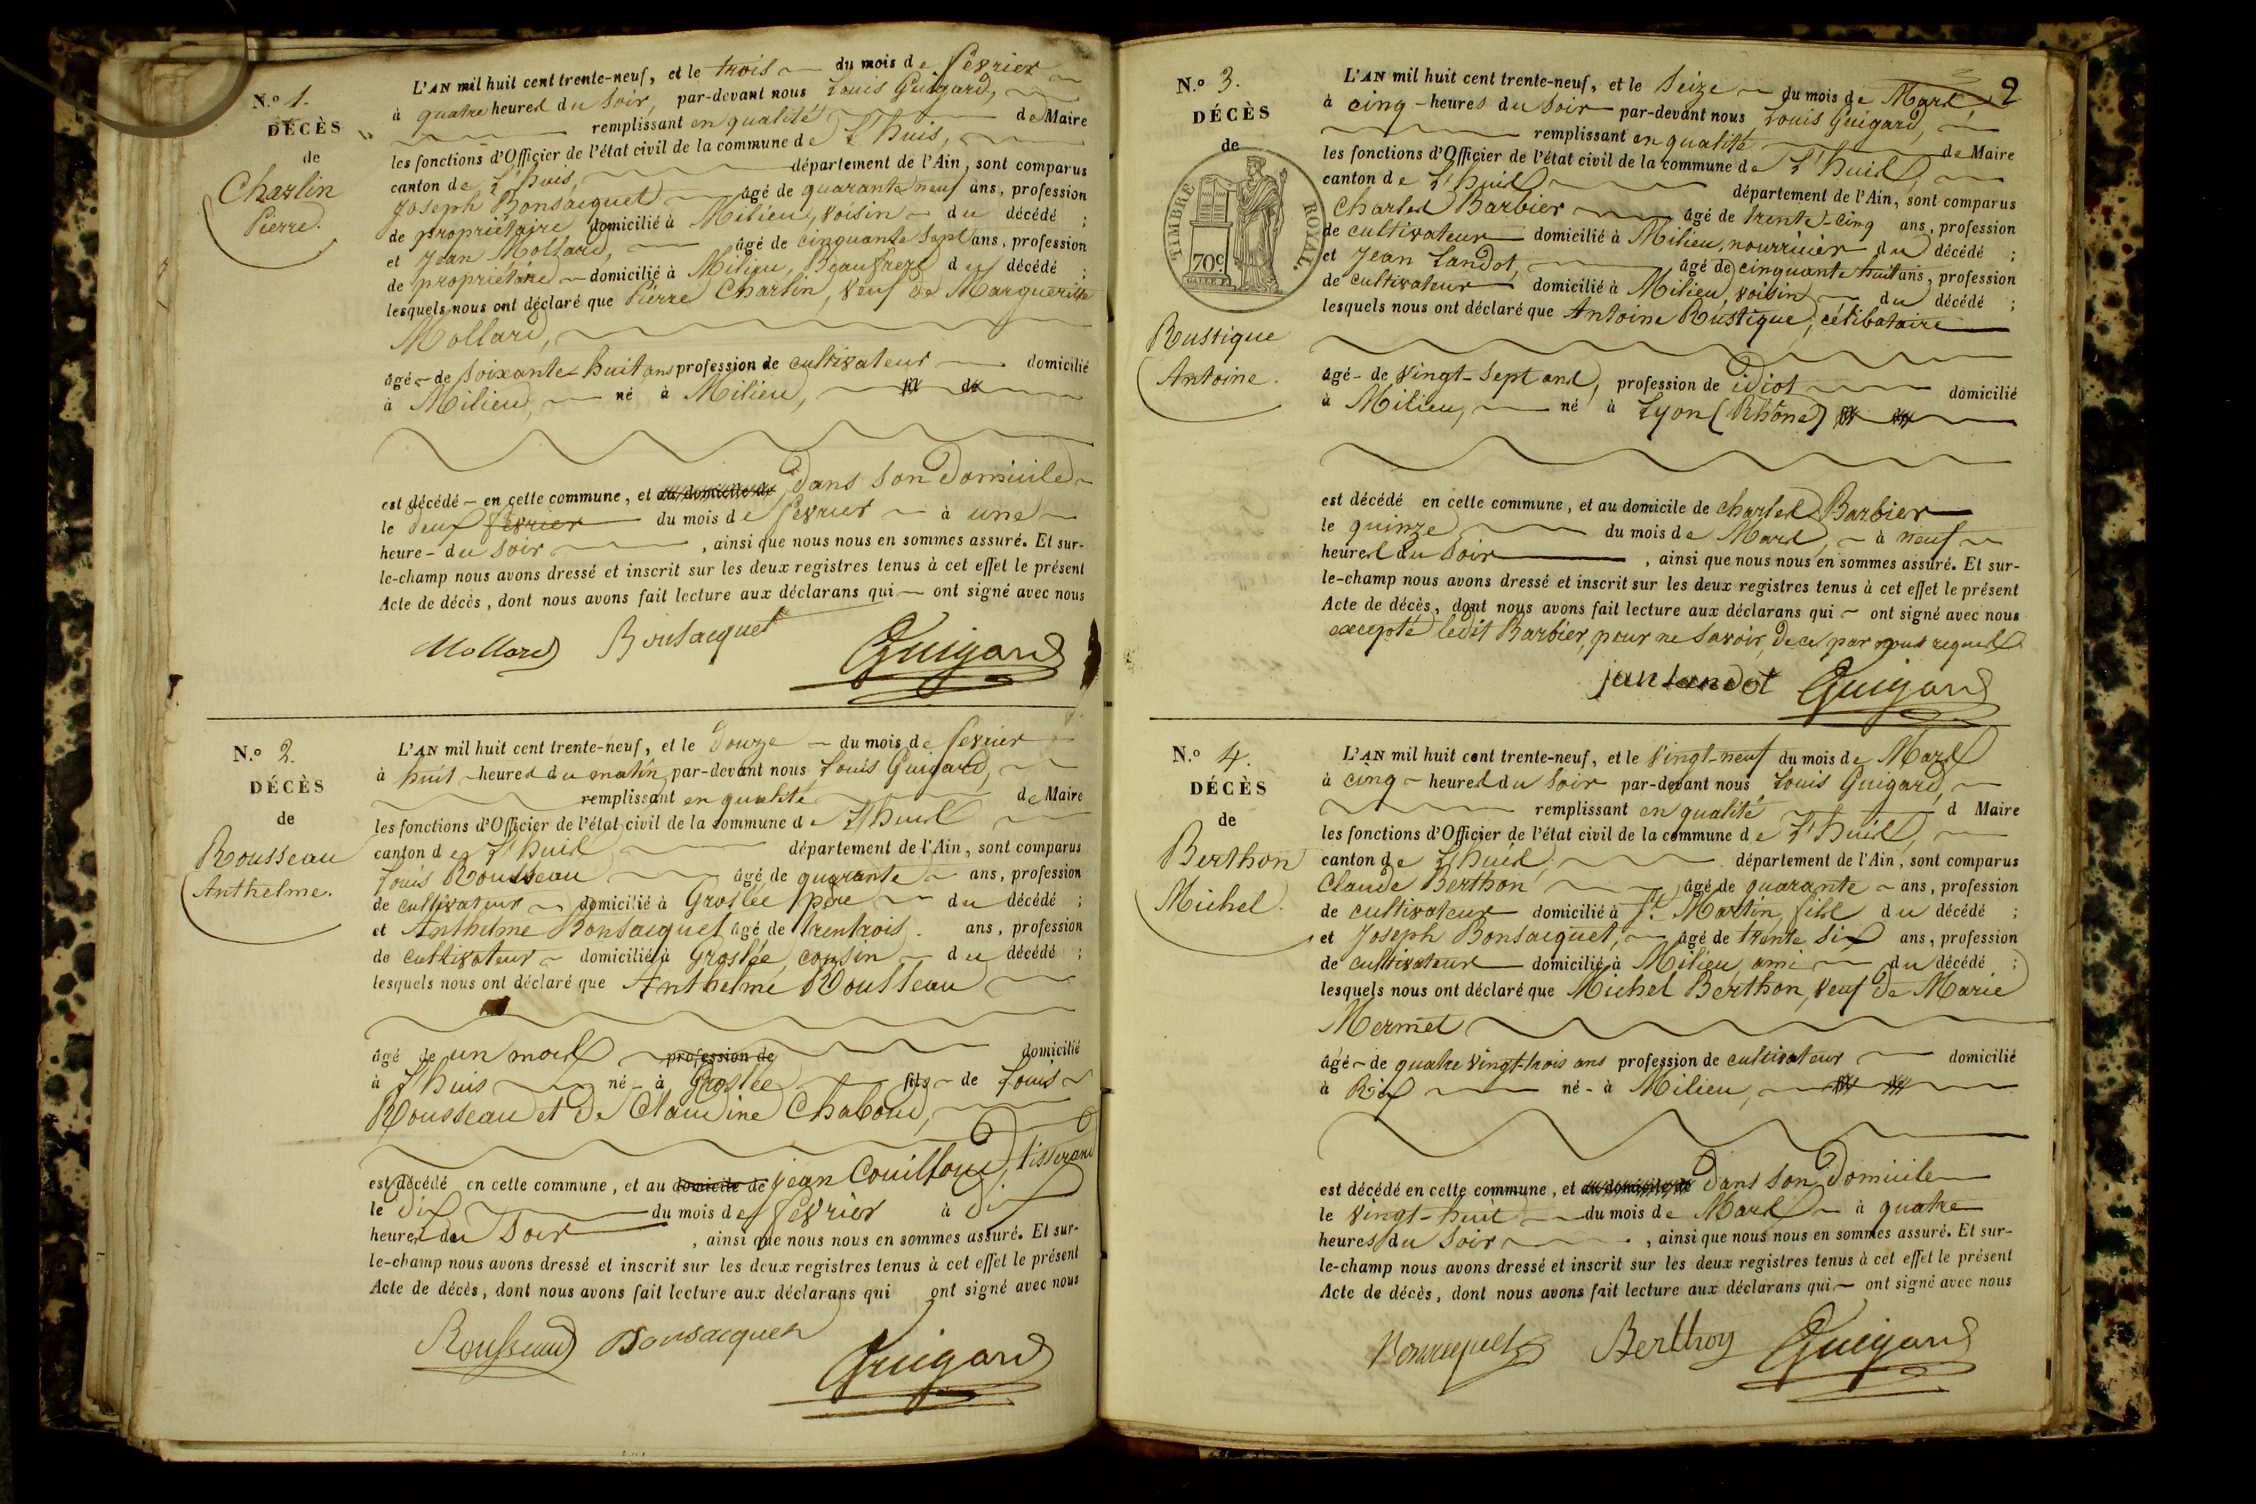 N.º 1.
DÉCÈS
de
Charlin
Pierre.
L'AN mil huit cent trente-neuf, et le trois du mois de février
à quatre heures du soir, par-devant nous Louis Guigard,
remplissant en qualité de Maire
les fonctions d'Officier de l'état civil de la commune de L'huis,
canton de L'huis, département de l'Ain, sont comparus
Joseph Bonsacquet âgé de quarante neuf ans, profession
de propriétaire domicilié à Milieu, voisin du décédé ;
et Jean Mollard, âgé de cinquante sept ans, profession
de propriétaire domicilié à Milieu, Beaufrere du décédé ;
lesquels nous ont déclaré que Pierre Charlin, veuf de Marguerite
Mollard,
âgé de soixante-huit ans profession de cultivateur domicilié
à Milieu, né à Milieu,
est décédé en cette commune, et au domicile de dans son domicile
le deux février du mois de février à une
heure du soir , ainsi que nous nous en sommes assuré. Et sur-
le-champ nous avons dressé et inscrit sur les deux registres tenus à cet effet le présent
Acte de décès, dont nous avons fait lecture aux déclarans qui ont signé avec nous
Mollard Bonsacquet Guigard
N.º 2.
DÉCÈS
de
Rousseau
Anthelme.
L'AN mil huit cent trente-neuf, et le douze du mois de fevrier
à huit heures du matin, par-devant nous Louis Guigard,
remplissant en qualité de Maire
les fonctions d'Officier de l'état civil de la commune de L'huis
canton de L'huis département de l'Ain, sont comparus
Louis Rousseau âgé de quarante ans, profession
de cultivateur domicilié à Groslée père du décédé ;
et Anthelme Bonsacquet âgé de trentrois ans, profession
de cultivateur domicilié à Groslée, cousin du décédé ;
lesquels nous ont déclaré que Anthelme Rousseau
âgé de un mois profession de domicilié
à L'huis né à Groslée fils de Louis
Rousseau et de Claudine Chaboud,
est décédé en cette commune, et au domicile de jean Couilloud, tisserand
le dix du mois de février à dix
heures du soir , ainsi que nous nous en sommes assuré. Et sur-
le-champ nous avons dressé et inscrit sur les deux registres tenus à cet effet le présent
Acte de décès, dont nous avons fait lecture aux déclarans qui ont signé avec nous
Rousseau Bonsacquet Guigard
2
N.º 3.
DÉCÈS
de
TIMBRE ROYAL.
70c.
Rustique
Antoine.
L'AN mil huit cent trente-neuf, et le seize du mois de Mars,
à cinq heures du soir par-devant nous Louis Guigard,
remplissant en qualité de Maire
les fonctions d'Officier de l'état civil de la commune de L'huis,
canton de L'huis département de l'Ain, sont comparus
Charles Barbier âgé de trente-cinq ans, profession
de cultivateur domicilié à Milieu, nourricier du décédé ;
et Jean Landot, âgé de cinquante huit ans, profession
de cultivateur domicilié à Milieu, voisin du décédé ;
lesquels nous ont déclaré que Antoine Rustique, célibataire
âgé de vingt-sept ans, profession de idiot domicilié
à Milieu, né à Lyon (Rhône)
est décédé en cette commune, et au domicile de charles Barbier
le quinze du mois de Mars, à neuf
heures du soir , ainsi que nous nous en sommes assuré. Et sur-
le-champ nous avons dressé et inscrit sur les deux registres tenus à cet effet le présent
Acte de décès, dont nous avons fait lecture aux déclarans qui ont signé avec nous
excepté ledit Barbier, pour ne savoir, de ce par nous requis
jan landot Guigard
N.º 4.
DÉCÈS
de
Berthon
Michel.
L'AN mil huit cent trente-neuf, et le vingt-neuf du mois de Mars
à cinq heures du soir par-devant nous Louis Guigard,
remplissant en qualité d Maire
les fonctions d'Officier de l'état civil de la commune de L'huis,
canton de L'huis, département de l'Ain, sont comparus
Claude Berthon âgé de quarante ans, profession
de cultivateur domicilié à St. Martin, fils du décédé ;
et Joseph Bonsacquet, âgé de trente six ans, profession
de cultivateur domicilié à Milieu, ami du décédé ;
lesquels nous ont déclaré que Michel Berthon, veuf de Marie
Mermet
âgé de quatre vingt-trois ans profession de cultivateur domicilié
à Rix né à Milieu,
est décédé en cette commune, et au domicile de dans son domicile
le vingt-huit du mois de Mars à quatre
heures du soir , ainsi que nous nous en sommes assuré. Et sur-
le-champ nous avons dressé et inscrit sur les deux registres tenus à cet effet le présent
Acte de décès, dont nous avons fait lecture aux déclarans qui ont signé avec nous
Bonsacquet Berthon Guigard